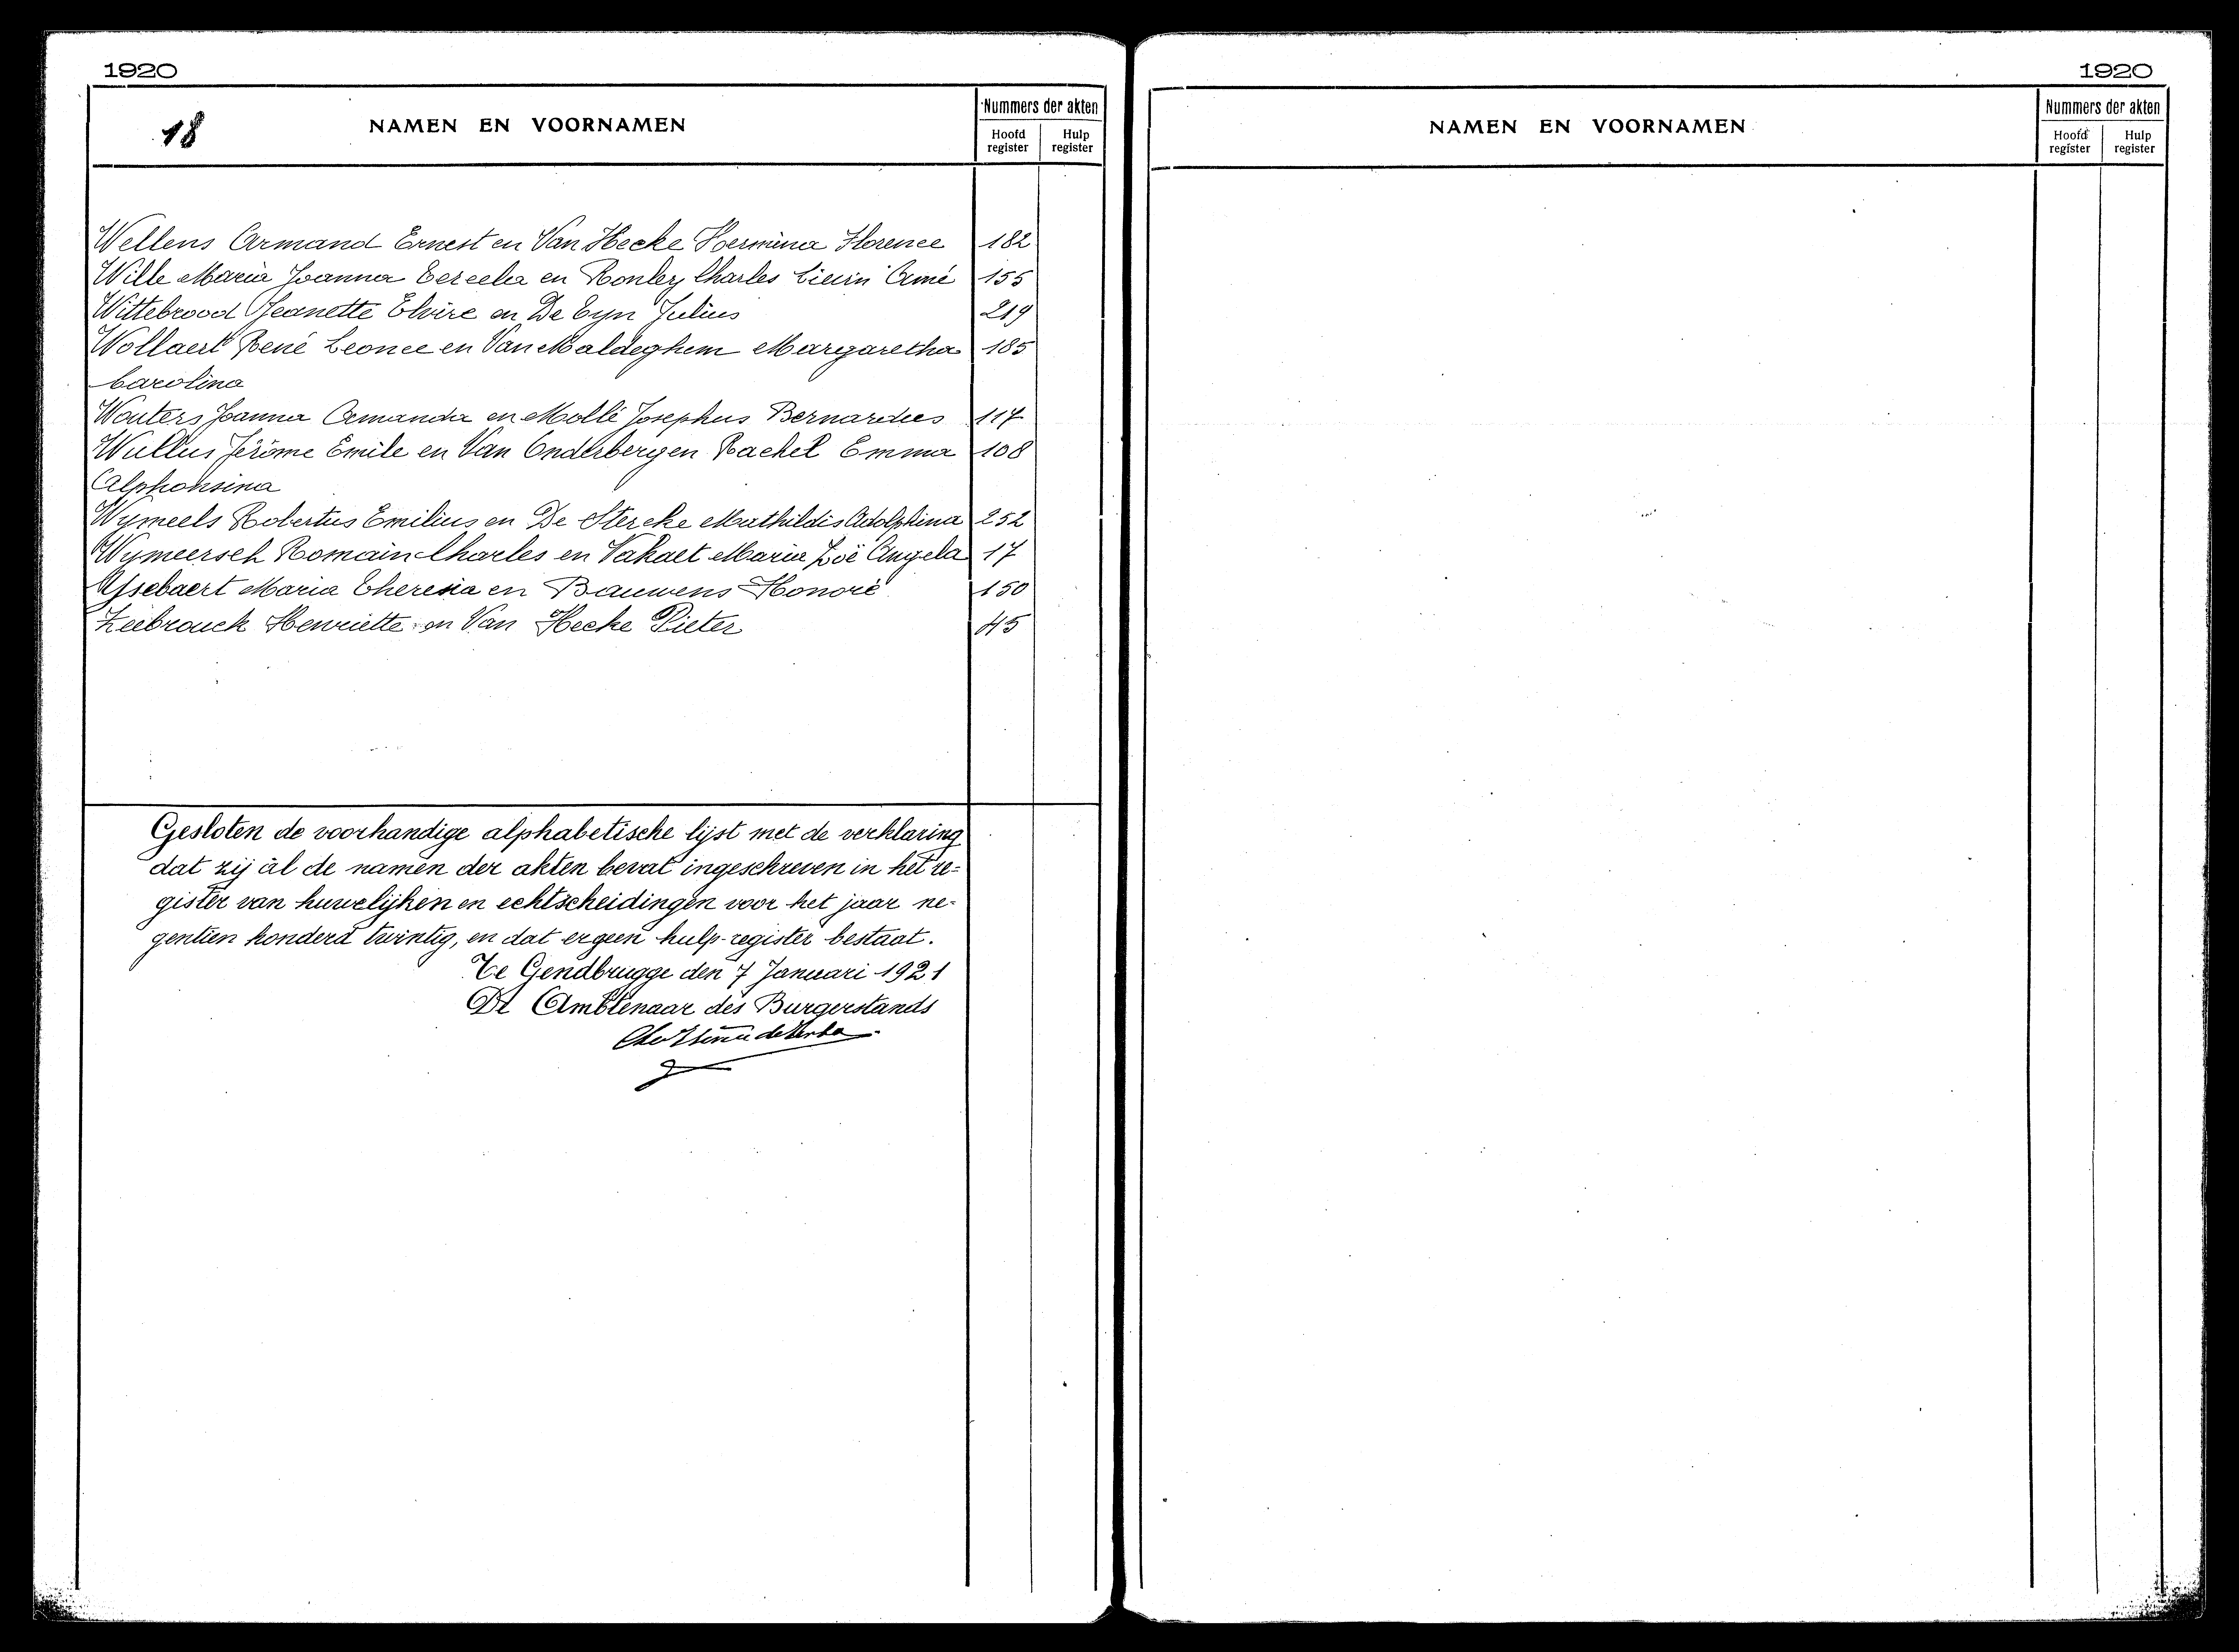 1920
18
NAMEN EN VOORNAMEN
Nummers der akten
Hoofd register
Hulp register
Wellens Armand Ernest en Van Hecke Hermina Florence 182
Wille Maria Joanna en Charles Lievin Aimé 155
Wittebrood Jeanette Elvire en De Cyn Julius 219
Wollaert René Leonce en Van Maldeghem Margaretha 185
Carolina
Wouters Joanna Amanda en Mollé Josephus Bernardus 117
Wullus Jérôme Emile en Van Onderbergen Rachel Emma 108
Alphonsina
Wymeels Robertus Emilius en De Stercke Mathildis Adolphina 252
Wymeersch Romain Charles en Vakaet Maria Zoë Angela 17
Ysebaert Maria Theresia en Bauwens Honoré 150
Zeebrouck Henriette en Van Hecke Pieter 45
Gesloten de voorhandige alphabetische lijst met de verklaring
dat zij al de namen der akten bevat ingeschreven in het re-
gister van huwelijken en echtscheidingen voor het jaar ne-
gentien honderd twintig, en dat er geen hulp-register bestaat.
Te Gendbrugge den 7 Januari 1921
De Ambtenaar des Burgerstands
1920
NAMEN EN VOORNAMEN
Nummers der akten
Hoofd register
Hulp register